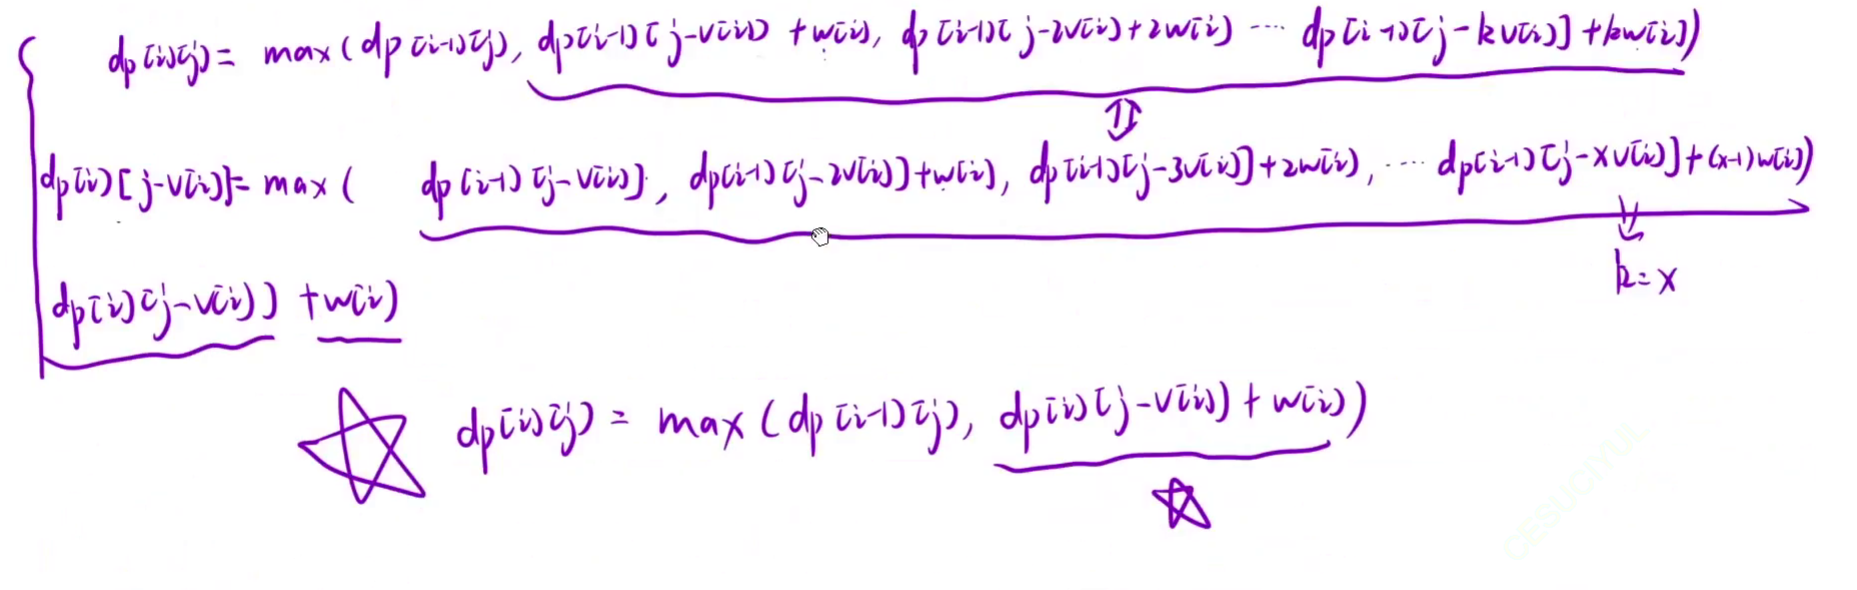 dp[i][j] = max(dp[i-1][j], dp[i-1][j-v[i]] + w[i], dp[i-1][j-2v[i]+2w[i] ... dp[i-1][j-kv[i]]+kw[i])
dp[i][j-v[i]] = max( dp[i-1][j-v[i]], dp[i-1][j-2v[i]]+w[i], dp[i-1][j-3v[i]]+2w[i], ... dp[i-1][j-xv[i]]+(x-1)w[i])
k=x
dp[i][j-v[i]] + w[i]
dp[i][j] = max(dp[i-1][j], dp[i][j-v[i]] + w[i])